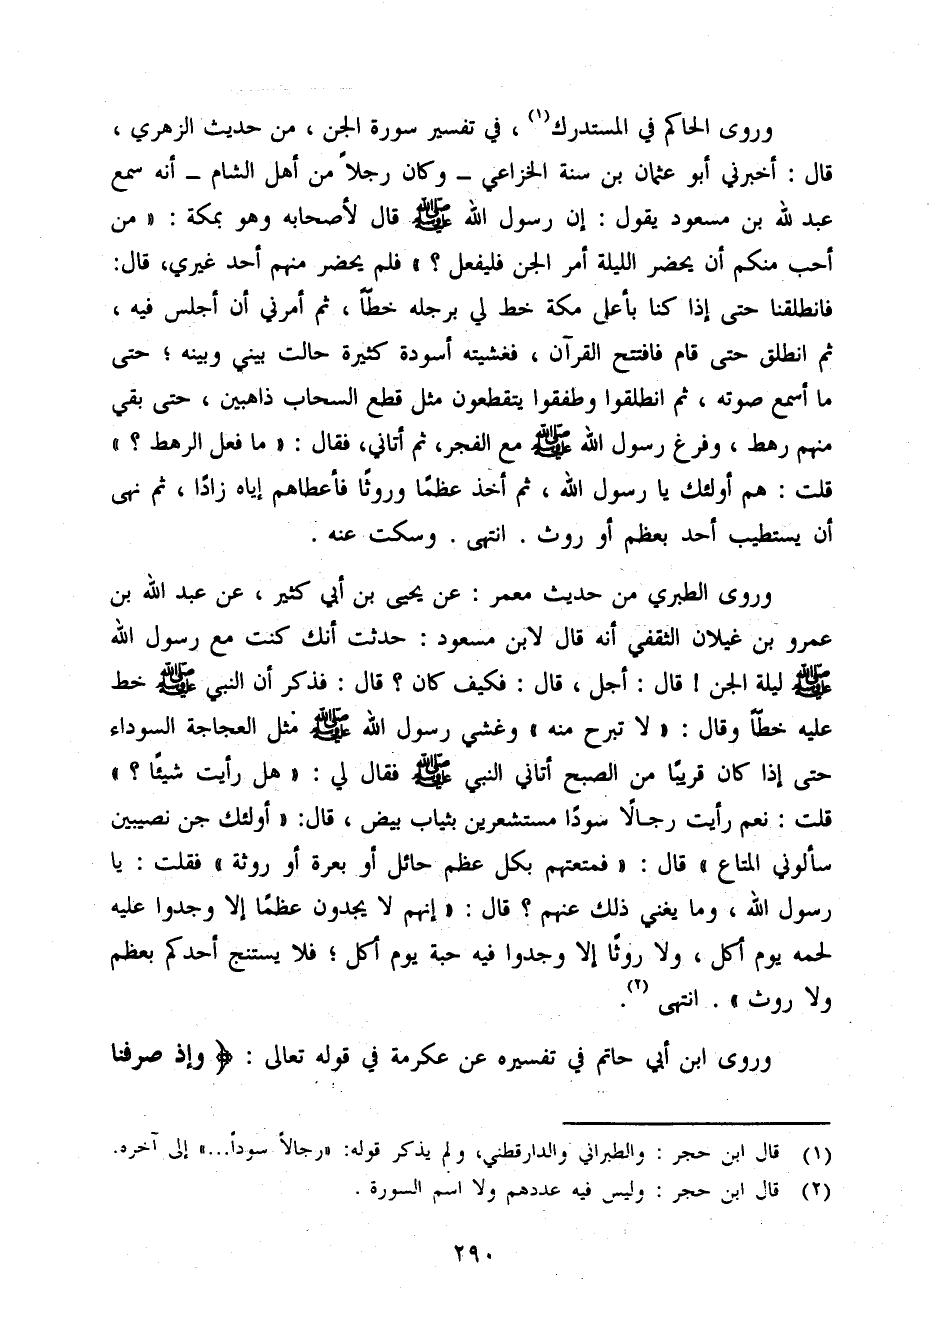 وروى الحاكم في المستدرك(١) ، في تفسير سورة الجن ، من حديث الزهري ،
قال : أخبرني أبو عثمان بن سنة الخزاعي – وكان رجلاً من أهل الشام – أنه سمع
عبد لله بن مسعود يقول : إن رسول الله ﷺ قال لأصحابه وهو بمكة : « من
أحب منكم أن يحضر الليلة أمر الجن فليفعل ؟ » فلم يحضر منهم أحد غيري، قال:
فانطلقنا حتى إذا كنا بأعلى مكة خط لي برجله خطًّا ، ثم أمرني أن أجلس فيه ،
ثم انطلق حتى قام فافتتح القرآن ، فغشيته أسودة كثيرة حالت بيني وبينه ؛ حتى
ما أسمع صوته ، ثم انطلقوا وطفقوا يتقطعون مثل قطع السحاب ذاهبين ، حتى بقي
منهم رهط ، وفرغ رسول الله ﷺ مع الفجر، ثم أتاني، فقال : « ما فعل الرهط ؟ »
قلت : هم أولئك يا رسول الله ، ثم أخذ عظمًا وروثًا فأعطاهم إياه زادًا ، ثم نهى
أن يستطيب أحد بعظم أو روث . انتهى . وسكت عنه .
وروى الطبري من حديث معمر : عن يحيى بن أبي كثير ، عن عبد الله بن
عمرو بن غيلان الثقفي أنه قال لابن مسعود : حدثت أنك كنت مع رسول الله
ﷺ ليلة الجن ! قال : أجل ، قال : فكيف كان ؟ قال : فذكر أن النبي ﷺ خط
عليه خطًّا وقال : « لا تبرح منه » وغشي رسول الله ﷺ مثل العجاجة السوداء
حتى إذا كان قريبًا من الصبح أتاني النبي ﷺ فقال لي : « هل رأيت شيئًا ؟ »
قلت : نعم رأيت رجالًا سودًا مستشعرين بثياب بيض ، قال: « أولئك جن نصيبين
سألوني المتاع » قال : « فمتعتهم بكل عظم حائل أو بعرة أو روثة » فقلت : يا
رسول الله ، وما يغني ذلك عنهم ؟ قال : « إنهم لا يجدون عظمًا إلا وجدوا عليه
لحمه يوم أكل ، ولا روثًا إلا وجدوا فيه حبة يوم أكل ؛ فلا يستنج أحدكم بعظم
ولا روث » . انتهى (٢).
وروى ابن أبي حاتم في تفسيره عن عكرمة في قوله تعالى : ﴿ وإذ صرفنا
(١) قال ابن حجر : والطبراني والدارقطني، ولم يذكر قوله: «رجالاً سوداً...» إلى آخره.
(٢) قال ابن حجر : وليس فيه عددهم ولا اسم السورة .
٢٩٠